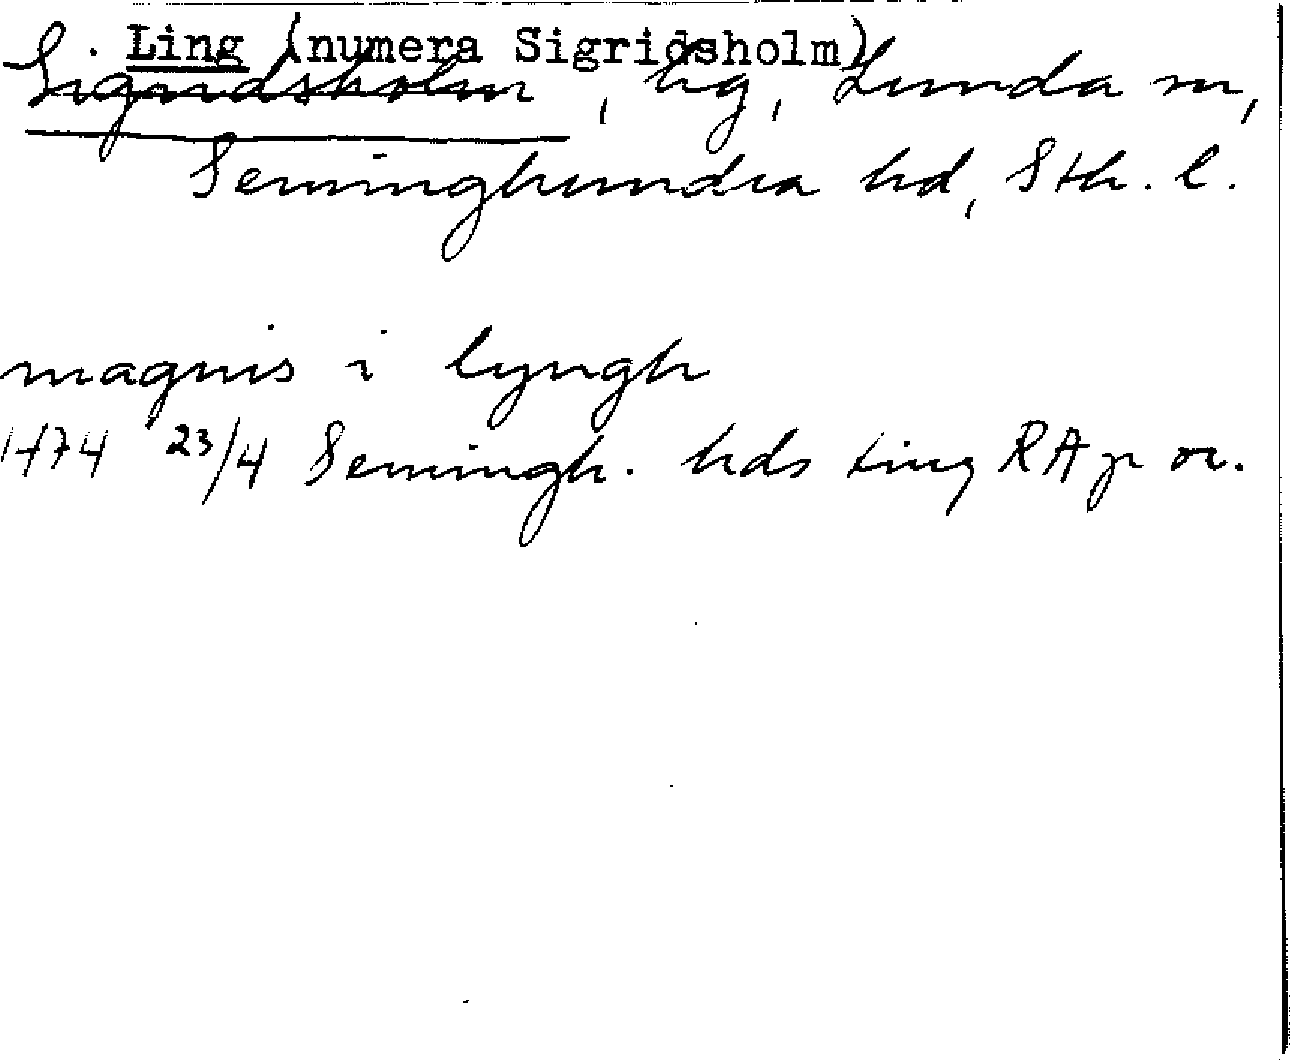 Ling (numera Sigridsholm)
Sigridsholm, hg, Lunda sn,
Seminghundra hd, Sth. l.
magnus i lyngh
1474 23/4 Semingh. hds ting RAp or.